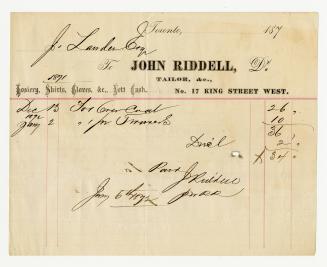 Toronto, 187
J. Lauder Esq
To JOHN RIDDELL, Dr.
TAILOR, &c.,
Hosiery, Shirts, Gloves, &c., Nett Cash. No. 17 KING STREET WEST.
1871
Dec 13 For Coat 26 "
1872
Jany 2 " for Trousers 10
36
Disct 2 "
34 "
Paid
J Riddell
Jany 5th 1872